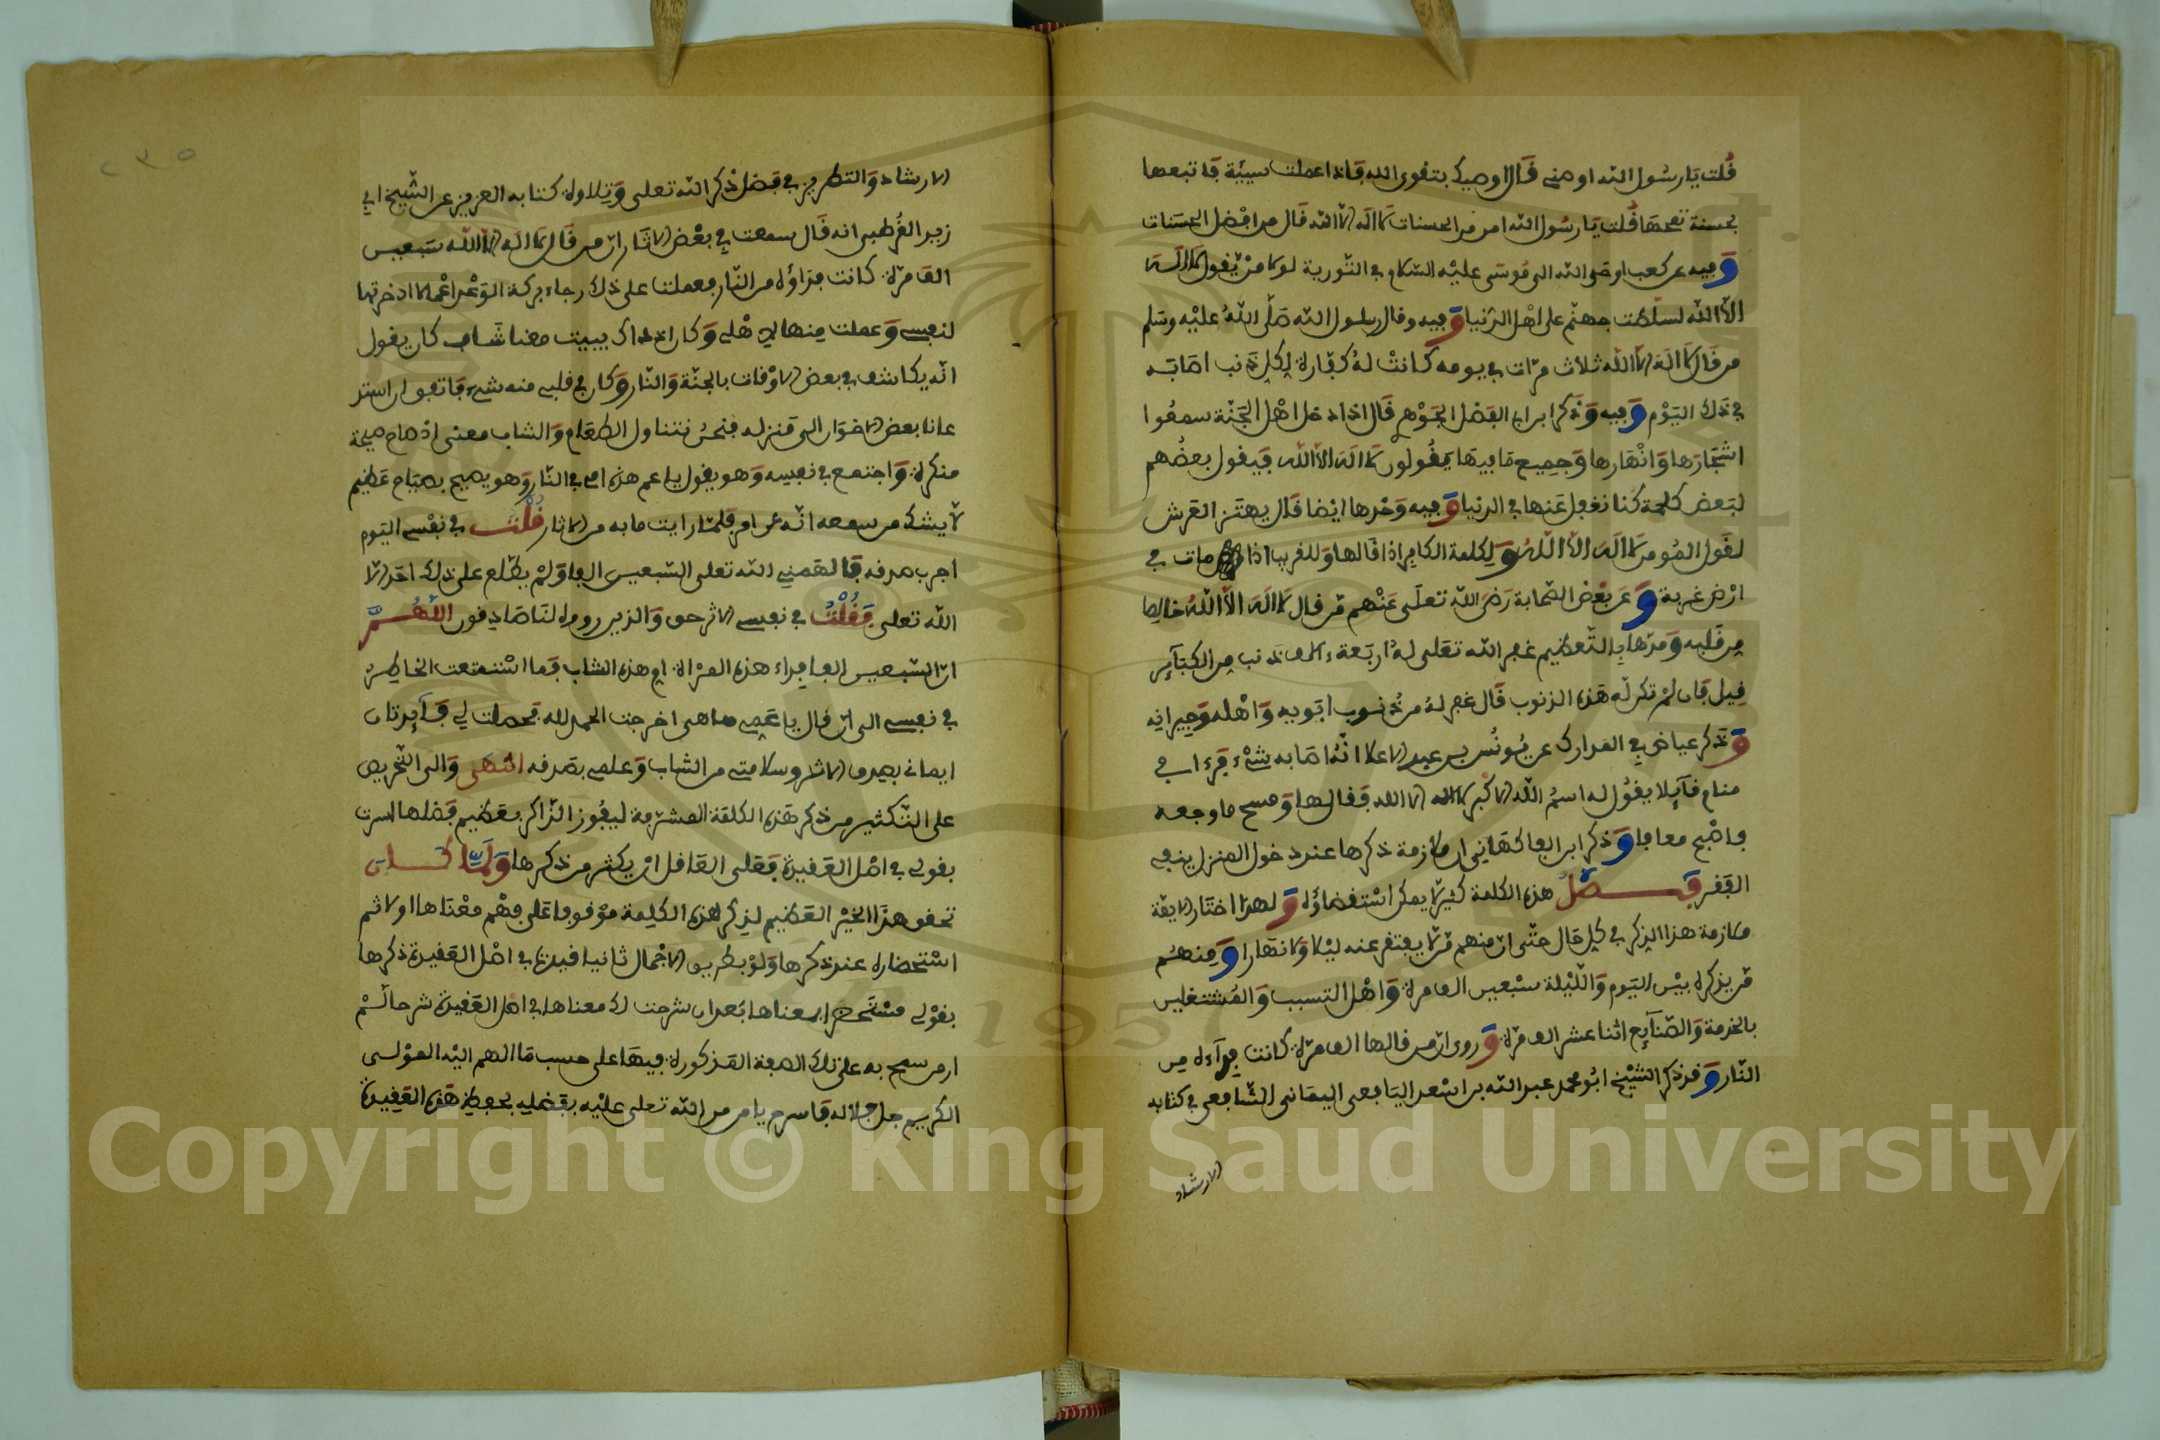 قلت يا رسول الله اوصني قال اوصيك بتقوى الله فاذا عملت سيئة فاتبعها
بحسنة تمحها قلت يا رسول الله امن الحسنات لا اله الا الله قال من افضل الحسنات
وفيه عن كعب اوحى الله الى موسى عليه السلام في التورية لولا من يقول لا اله
الا الله لسلطت جهنم على اهل الدنيا وفيه وقال رسول الله صلى الله عليه وسلم
من قال لا اله الا الله ثلاث مرات في يومه كانت له كفارة لكل ذنب اصابه
في ذلك اليوم وفيه وذكر ابن ابي الفضل الجوهري قال اذا دخل اهل الجنة سمعوا
اشجارها وانهارها وجميع ما فيها يقولون لا اله الا الله فيقول بعضهم
لبعض كلمة كنا نغفل عنها في الدنيا وفيه وحدها ايضا قال يهتز العرش
لقول المومن لا اله الا الله ولكلمة الكافر اذا قالها وللغريب اذا مات في
ارض غربة وعن بعض الصحابة رضي الله تعلى عنهم من قال لا اله الا الله خالصا
من قلبه ومدها بالتعظيم غفر الله تعلى له اربعة ءالاف ذنب من الكبآئر
قيل فان لم تكن له هذه الذنوب قال غفر له من ذنوب ابويه واهله وجيرانه
وذكر عياض في المدارك عن يونس بن عبد الاعلا انه اصابه شيء فرءا في
منام قآئلا يقول له اسم الله الاكبر لا اله الا الله فقالها ومسح ما وجعه
فاصبح معافا وذكر ابن الفاكهاني ان ملازمة ذكرها عند دخول المنزل ينفي
الفقر فصل هذه الكلمة كثير لا يمكن استقصاؤه ولهذا اختار الايمة
ملازمة هذا الذكر في كل حال حتى ان منهم من لا يفتر عنه ليلا ولا نهارا ومنهم
من يذكره بين اليوم والليلة سبعين الف مرة واهل التسبب والمشتغلين
بالخدمة والصنآيع اثنا عشر الف مرة وروى ان من قالها الف مرة كانت فدآءه من
النار وقد ذكر الشيخ ابو محمد عبد الله بن اسعد اليافعي اليماني الشافعي في كتابه
الارشاد
٢٣٥
الارشاد والتطريز في فضل ذكر الله تعلى وتلاوة كتابه العزيز عن الشيخ ابي
زيد القرطبي انه قال سمعت في بعض الاثار ان من قال لا اله الا الله سبعين
الف مرة كانت فداؤه من النار فعملت على ذلك رجاء بركة الوعد اعمالا ادخرتها
لنفسي وعملت منها لاهلي وكان اذ ذاك يبيت معنا شاب كان يقول
انه يكاشف في بعض الاوقات بالجنة والنار وكان في قلبي منه شيء فاتفق ان استد
عانا بعض الاخوان الى منزله فنحن نتناول الطعام والشاب معنى اذ صاح صيحة
منكرة واجتمع في نفسه وهو يقول يا عم هذه امي في النار وهو يصيح بصياح عظيم
لا يشك من سمعه انه عن امر فلما رايت ما به من الاثار قلت في نفسي اليوم
اجرب صدقه فالهمني الله تعلى السبعين الفا ولم يطلع على ذلك احد الا
الله تعلى فقلت في نفسي الاثر حق والذين رووه لنا صادقون اللهم
ان السبعين الفا فداء هذه المراة ام هذا الشاب فما استتمت الخاطر
في نفسي الى ان قال يا عمي ها هي اخرجت الحمد لله فحصلت لي فآئدتان
ايماني بصدق الاثر وسلامتي من الشاب وعلمي بصدقه انتهى والى التحريض
على التكثير من ذكر هذه الكلمة المشرفة ليفوز الذاكر بعظيم فضلها اشرت
بقولي في اصل العقيدة فعلى العاقل ان يكثر من ذكرها ولما كان
تحقق هذا الخير العظيم لذكر هذه الكلمة موقوفا على فهم معناها اولا ثم
استحضاره عند ذكرها ولو بطريق الاجمال ثانيا قيدنا في اصل العقيدة ذكرها
بقولي مستحضرا لمعناها بعد ان شرحت لك معناها في اصل العقيدة شرحا لم
ار من سمح به على تلك الصفة المذكورة فيها على حسب ما الهم اليه المولى
الكريم جل جلاله فاسرح يا من من الله تعلى عليه بفضله بحفظ هذه العقيدة